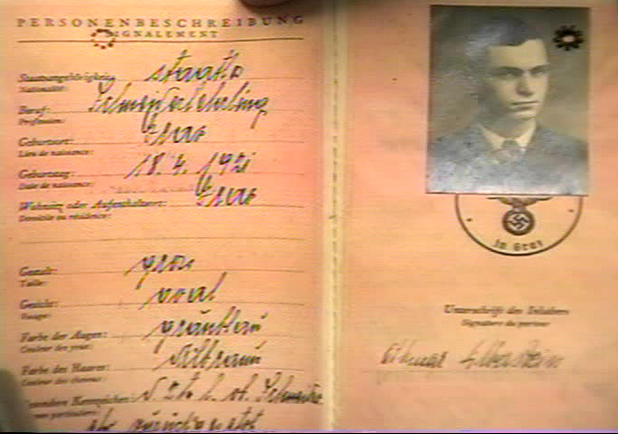 PERSONENBESCHREIBUNG
SIGNALEMENT
Staatsangehörigkeit: staatlo
Nationalité:
Beruf:
Profession:
Geburtsort: Graz
Lieu de naissance:
Geburtstag: 18. 4. 1921
Date de naissance:
Wohnsitz oder Aufenthaltsort: Graz
Domicile ou résidence:
Gestalt: gross
Taille:
Gesicht: oval
Visage:
Farbe der Augen: graublau
Couleur des yeux:
Farbe des Haares: dklbraun
Couleur des cheveux:
Besondere Kennzeichen:
in Graz
Unterschrift des Inhabers
Signature du porteur
Othmar Silberstein